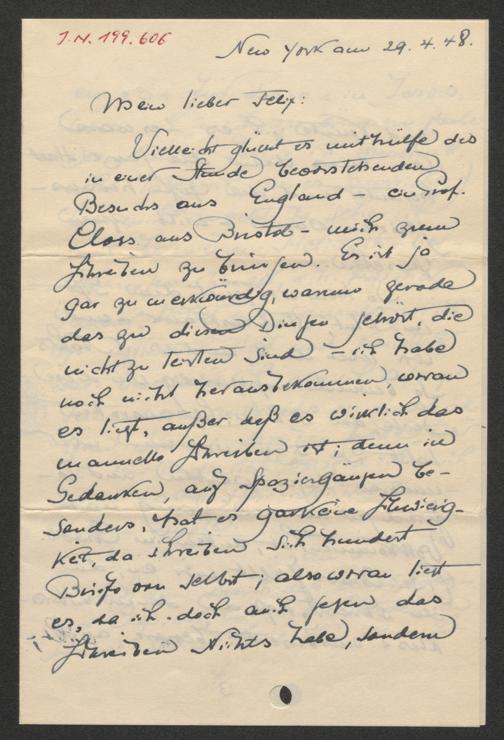 J.N. 199.606
New York am 29.4.48.
Mein lieber Felix:
Vielleicht glückt es mit hülfe des
in einer Stunde bevorstehenden
Besuchs aus England – ein Prof.
Closs aus Bristol – mich zum
schreiben zu bringen. Es ist ja
gar zu merkwürdig, warum gerade
das zu diesen Dingen gehört, die
nicht zu leisten sind – ich habe
noch nicht herausbekommen, woran
es liegt, außer daß es wirklich das
manuelle schreiben ist; denn in
Gedanken, auf Spaziergängen be-
sonders, hat es gar keine Schwierig-
keit, da schreiben sich hundert
Briefe von selbst; also woran liegt
es, da ich doch auch gegen das
schreiben Nichts habe, sondern